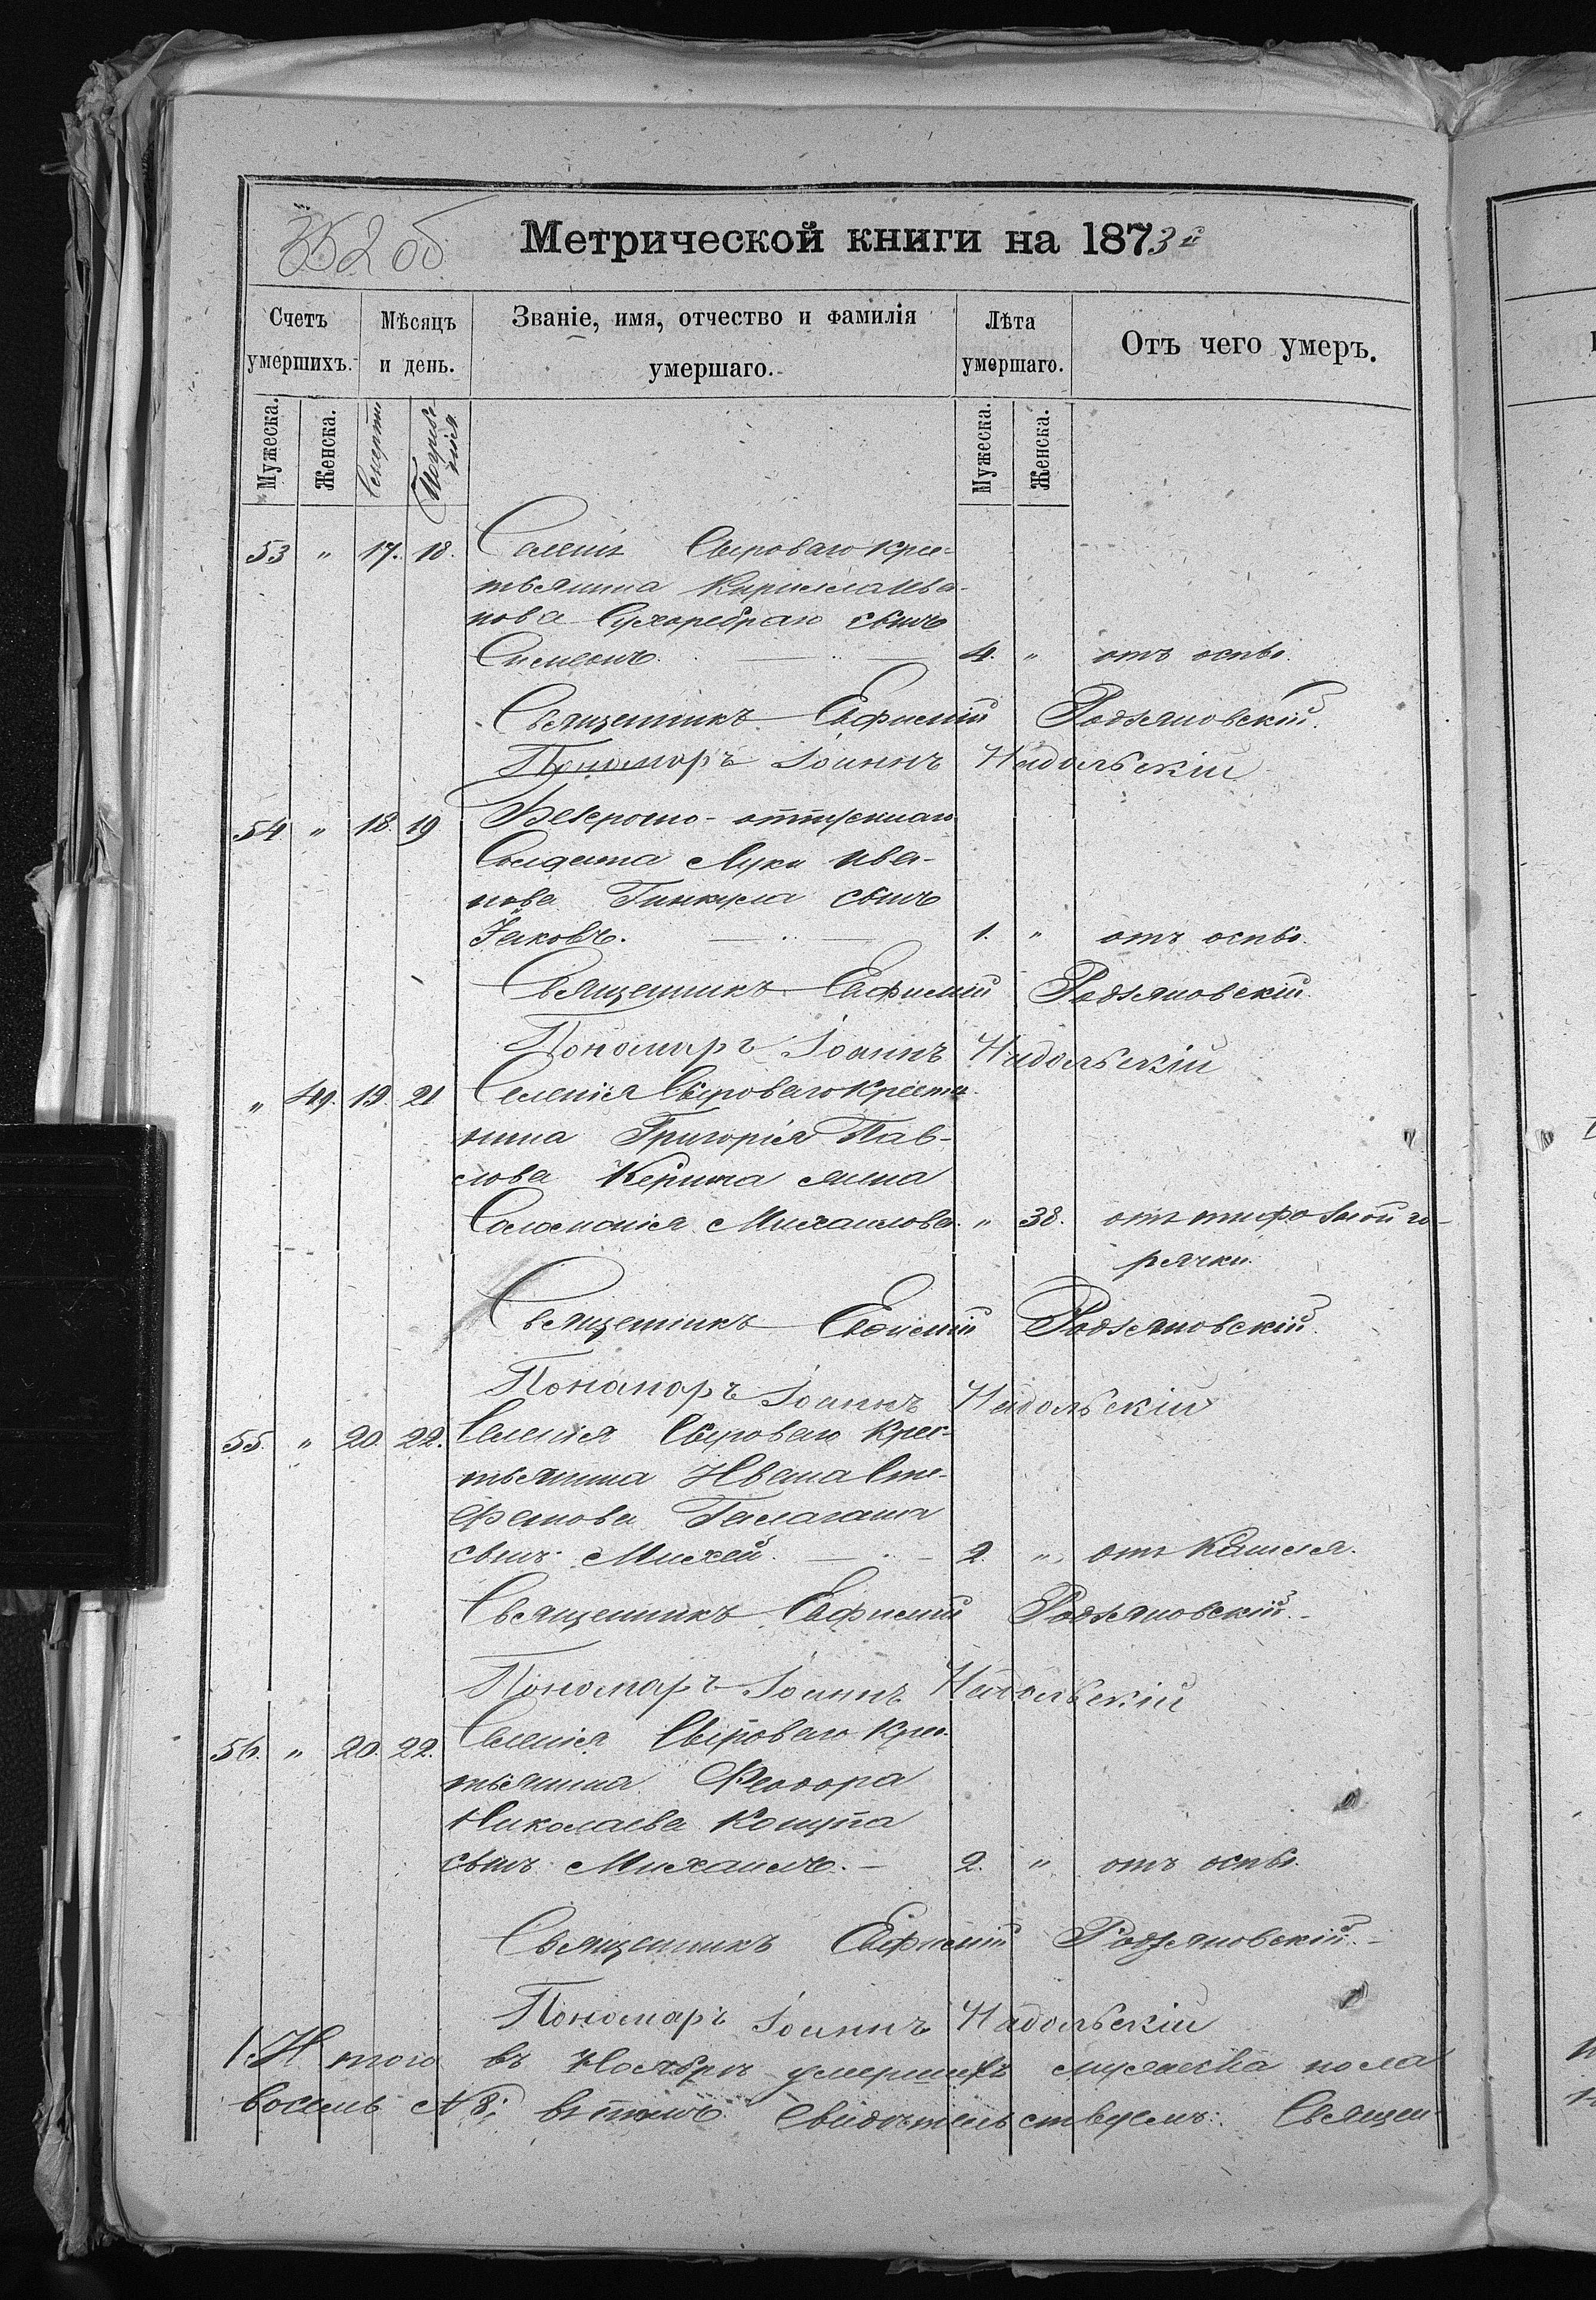 352 об
Метрической книги на 1873 й
Счетъ умершихъ.
Мѣсяцъ и день.
Званіе, имя, отчество и фамилія умершаго.
Лѣта умершаго.
Отъ чего умеръ.
Мужеска.
Женска.
Смерти
Погребенія
Мужеска.
Женска.
53 " 17. 18. Селенія Сырового крес-
тьянина Кирилла Ива-
нова сынъ
Симеонъ. 4. " отъ оспы.
Священникъ Евфимій Родзяновскій.
Пономарь Іоаннъ Надольскій
54 " 18. 19 Безсрочно-отпускнаго
Солдата Луки Ива-
нова Гинкула сынъ
Іаковъ. 1. " отъ оспы.
Священникъ Евфимій Родзяновскій.
Пономарь Іоаннъ Надольскій
" 49. 19. 21 Селенія Сырового крестья-
нина Григорія Пав-
лова жена
Саломонія Михаилова. " 38. отъ тифозной го-
рячки.
Священникъ Евфимій Родзяновскій.
Пономарь Іоаннъ Надольскій
55. " 20. 22. Селенія Сырового крес-
тьянина Ивана Сте-
фанова Галагана
сынъ Михей. 2. " отъ Кашля.
Священникъ Евфимій Родзяновскій.
Пономарь Іоаннъ Надольскій
56. " 20. 22. Селенія Сырового крес-
тьянина Феодора
Николаева
сынъ Михаилъ. 2. " отъ оспы.
Священникъ Евфимій Родзяновскій.
Пономарь Іоаннъ Надольскій
Итого въ Ноябрѣ умершихъ мужеска пола
восемь № 8; въ томъ Свидѣтельствуемъ: Священ-